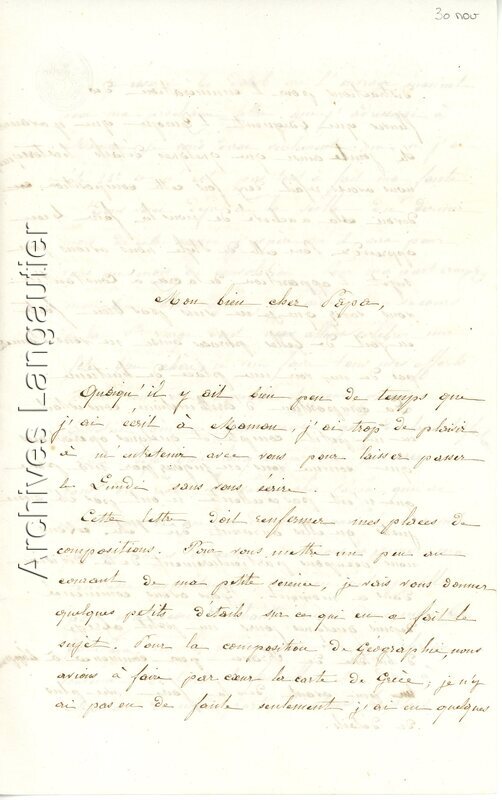 30 nov
Mon bien cher Papa,
Quoiqu'il y ait bien peu de temps que
j'ai écrit à Maman, j'ai trop de plaisir
à m'entretenir avec vous pour laisser passer
le Lundi sans vous écrire.
Cette lettre doit renfermer mes places de
compositions. Pour vous mettre un peu au
courant de ma petite science, je vais vous donner
quelques petits détails sur ce qui en a fait le
sujet. Pour la composition de Géographie, nous
avions à faire par cœur la carte de Grèce; je n'y
ai pas eu de faute seulement j'ai eu quelques
Archives Langautier